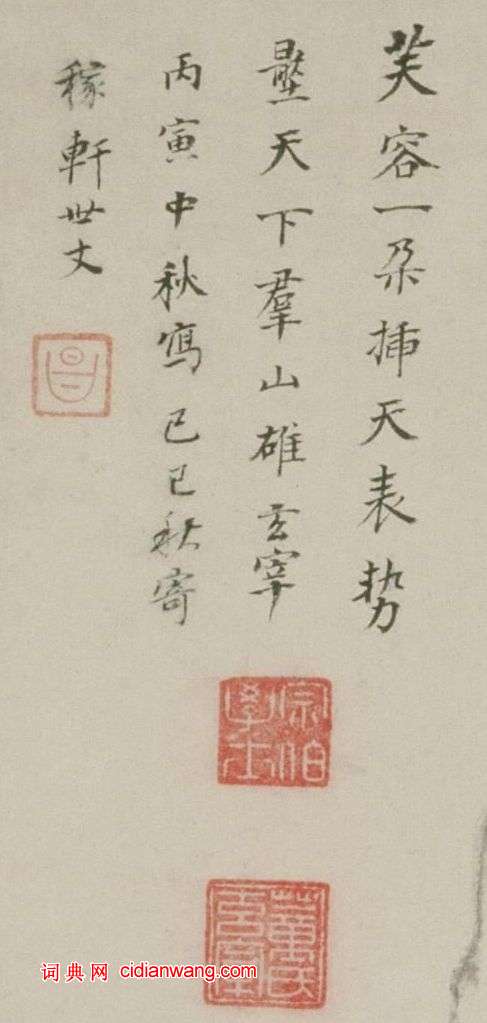 芙容一朵揷天表势
壓天下羣山雄玄宰
丙寅中秋寫己巳秋寄
稼軒世丈
昌
宗伯學士
董氏玄宰
词典网 cidianwang.com